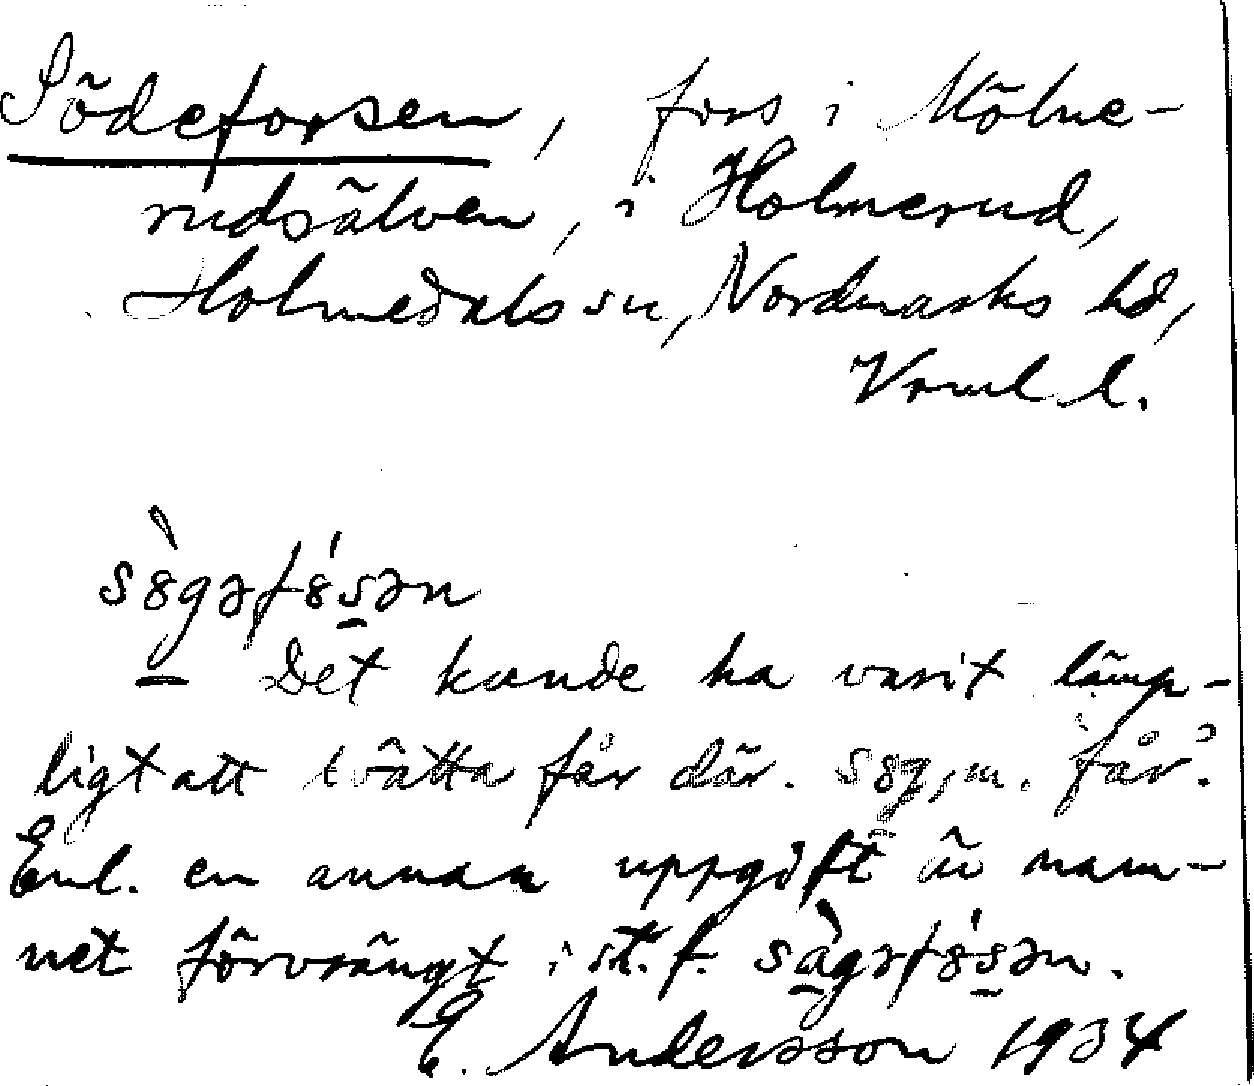 Södeforsen, fors i Mölne-
rudsälven, i Holmerud,
Holmedals sn, Nordmarks hd,
Vrml l.
sògəfósən
Det kunde ha varit lämp-
ligt att tvätta får där. søg, m. 'får'.
Enl. en annan uppgift är nam-
net förvrängt i st. f. sàgəfósən.
E. Andersson 1934